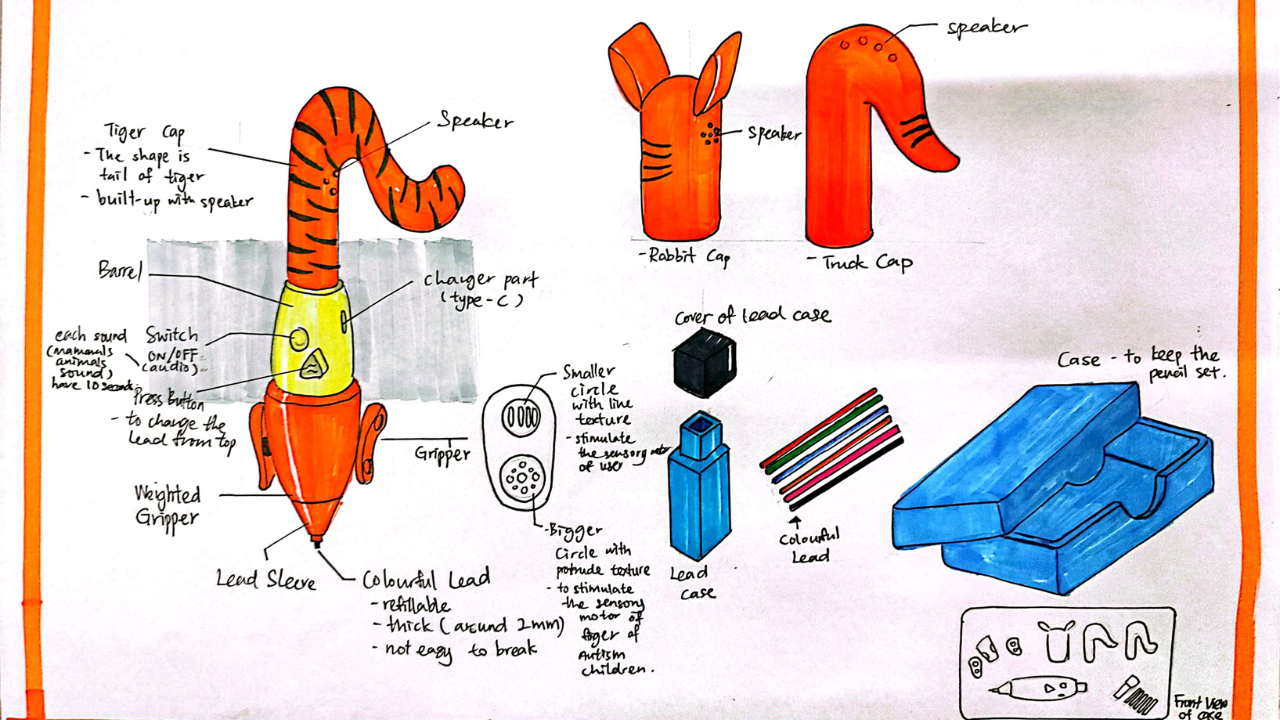 Tiger Cap
- The shape is
tail of tiger
- built-up with speaker
Speaker
Barrel
charger part
(type-C)
each sound
(mammals
animals
sound)
have 10 second
Switch
ON/OFF
(audio)
Press Button
- to change the
lead from top
Gripper
Weighted
Gripper
Lead Sleeve
Colourful Lead
- refillable
- thick (around 2mm)
- not easy to break
Smaller
circle
with line
texture
- stimulate
the sensory
of user
- Bigger
Circle with
protrude texture
- to stimulate
the sensory
motor of
figer of
Autism
children.
speaker
- Rabbit Cap
speaker
- Truck Cap
Cover of lead case
Lead
case
Colourful
Lead
Case - to keep the
pencil set.
Front View
of case